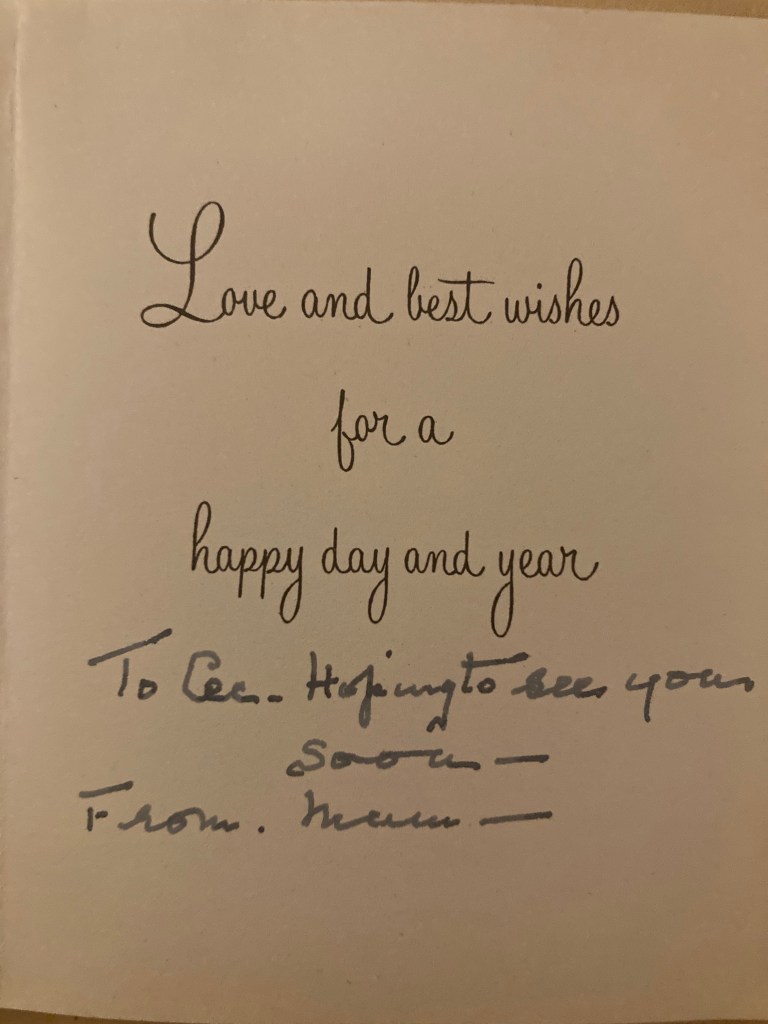 Love and best wishes
for a
happy day and year
To Cec - Hoping to see you
soon —
From. Mum —